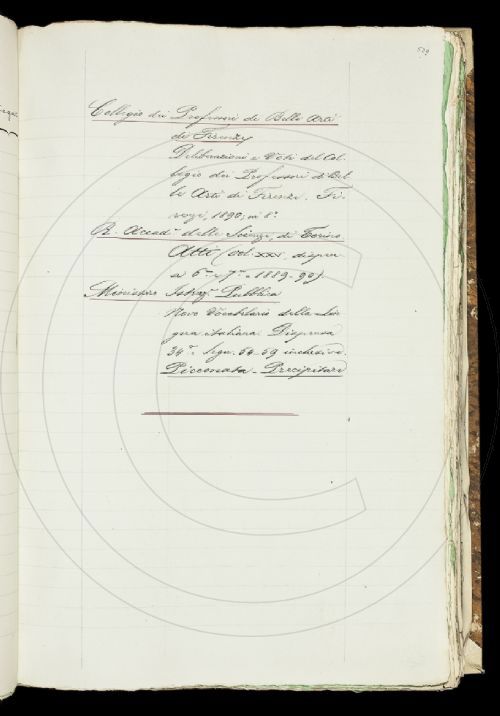 509
Collegio dei Professori di Belle Arti
di Firenze
Deliberazioni e Voti del Col-
legio dei Professori di Bel-
le Arti di Firenze. Fi-
renze, 1890, in 8°.
R. Accad.ª delle Scienze, di Torino
Atti (vol. XXV, dispen-
sa 6.ª e 7.ª - 1889-90).
Ministero Istruz.e Pubblica
Novo Vocabolario della Lin-
gua italiana. Dispensa
34.ª Segn. 54-59 inclusive.
Picconata - Precipitare